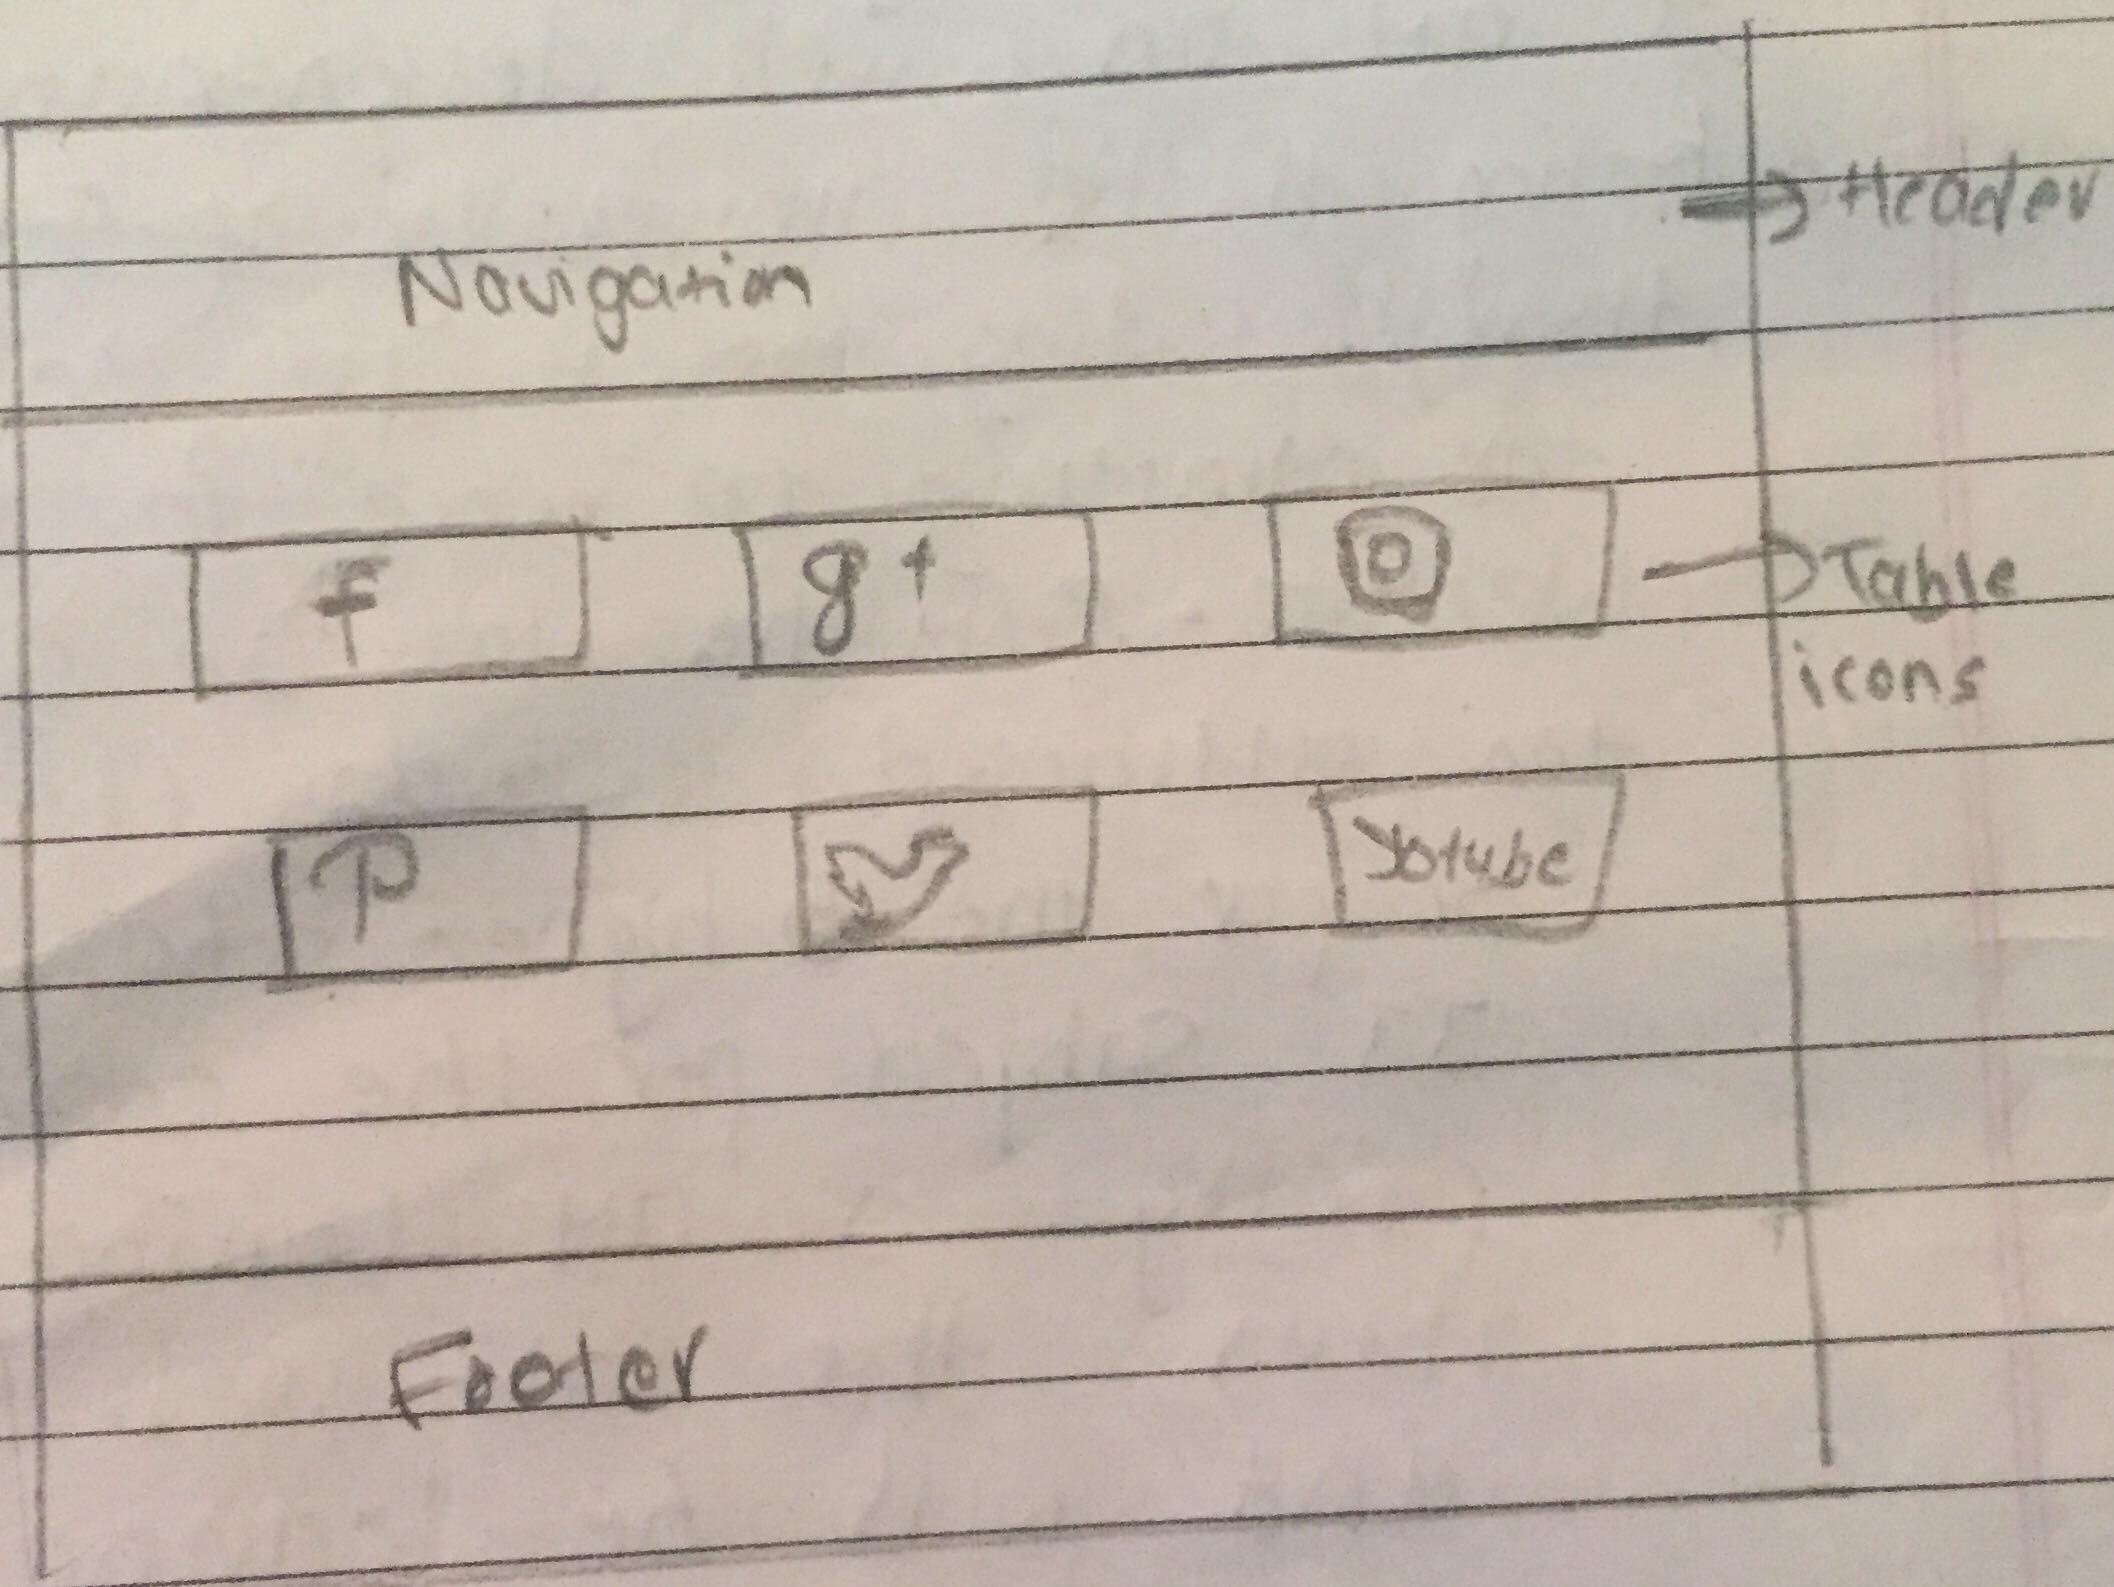 Header
Navigation
f
g+
Table
icons
P
Yotube
Footer